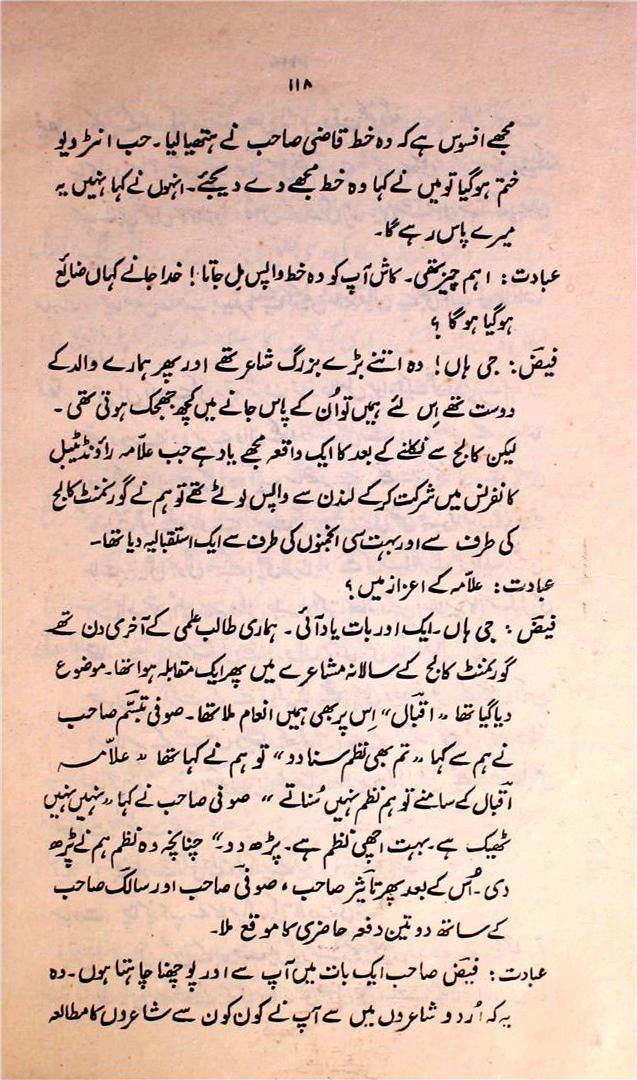 ۱۱۸
مجھے افسوس ہے کہ وہ خط قاضی صاحب نے ہتھیا لیا۔ جب انٹرویو
ختم ہوگیا تو میں نے کہا وہ خط مجھے دے دیجئے۔ انہوں نے کہا نہیں یہ
میرے پاس رہے گا۔
عبادت: اہم چیز تھی۔ کاش آپ کو وہ خط واپس مل جاتا! خدا جانے کہاں ضائع
ہوگیا ہوگا ؟
فیضؔ: جی ہاں! وہ اتنے بڑے بزرگ شاعر تھے اور پھر ہمارے والد کے
دوست تھے اِس لئے ہمیں تو اُن کے پاس جانے میں کچھ جھجک ہوتی تھی۔
لیکن کالج سے نکلنے کے بعد کا ایک واقعہ مجھے یاد ہے جب علاّمہ راؤنڈ ٹیبل
کانفرنس میں شرکت کرکے لندن سے واپس لوٹے تھے تو ہم نے گورنمنٹ کالج
کی طرف سے اور بہت سی انجمنوں کی طرف سے ایک استقبالیہ دیا تھا۔
عبادت: علاّمہ کے اعزاز میں؟
فیضؔ: جی ہاں۔ ایک اور بات یاد آئی۔ ہماری طالب علمی کے آخری دن تھے
گورنمنٹ کالج کے سالانہ مشاعرے میں پھر ایک مقابلہ ہوا تھا۔ موضوع
دیا گیا تھا "اقبالؔ" اِس پر بھی ہمیں انعام ملا تھا۔ صوفی تبسّم صاحب
نے ہم سے کہا "تم بھی نظم سنا دو" تو ہم نے کہا تھا "علاّمہ
اقبالؔ کے سامنے تو ہم نظم نہیں سُناتے" صوفی صاحب نے کہا "نہیں نہیں
ٹھیک ہے۔ بہت اچھی نظم ہے۔ پڑھ دو۔" چنانچہ وہ نظم ہم نے پڑھ
دی۔ اُس کے بعد پھر تاثیرؔ صاحب، صوفیؔ صاحب اور سالکؔ صاحب
کے ساتھ دو تین دفعہ حاضری کا موقع ملا۔
عبادت: فیضؔ صاحب ایک بات میں آپ سے اور پوچھنا چاہتا ہوں۔ وہ
یہ کہ اُردو شاعروں میں سے آپ نے کون کون سے شاعروں کا مطالعہ